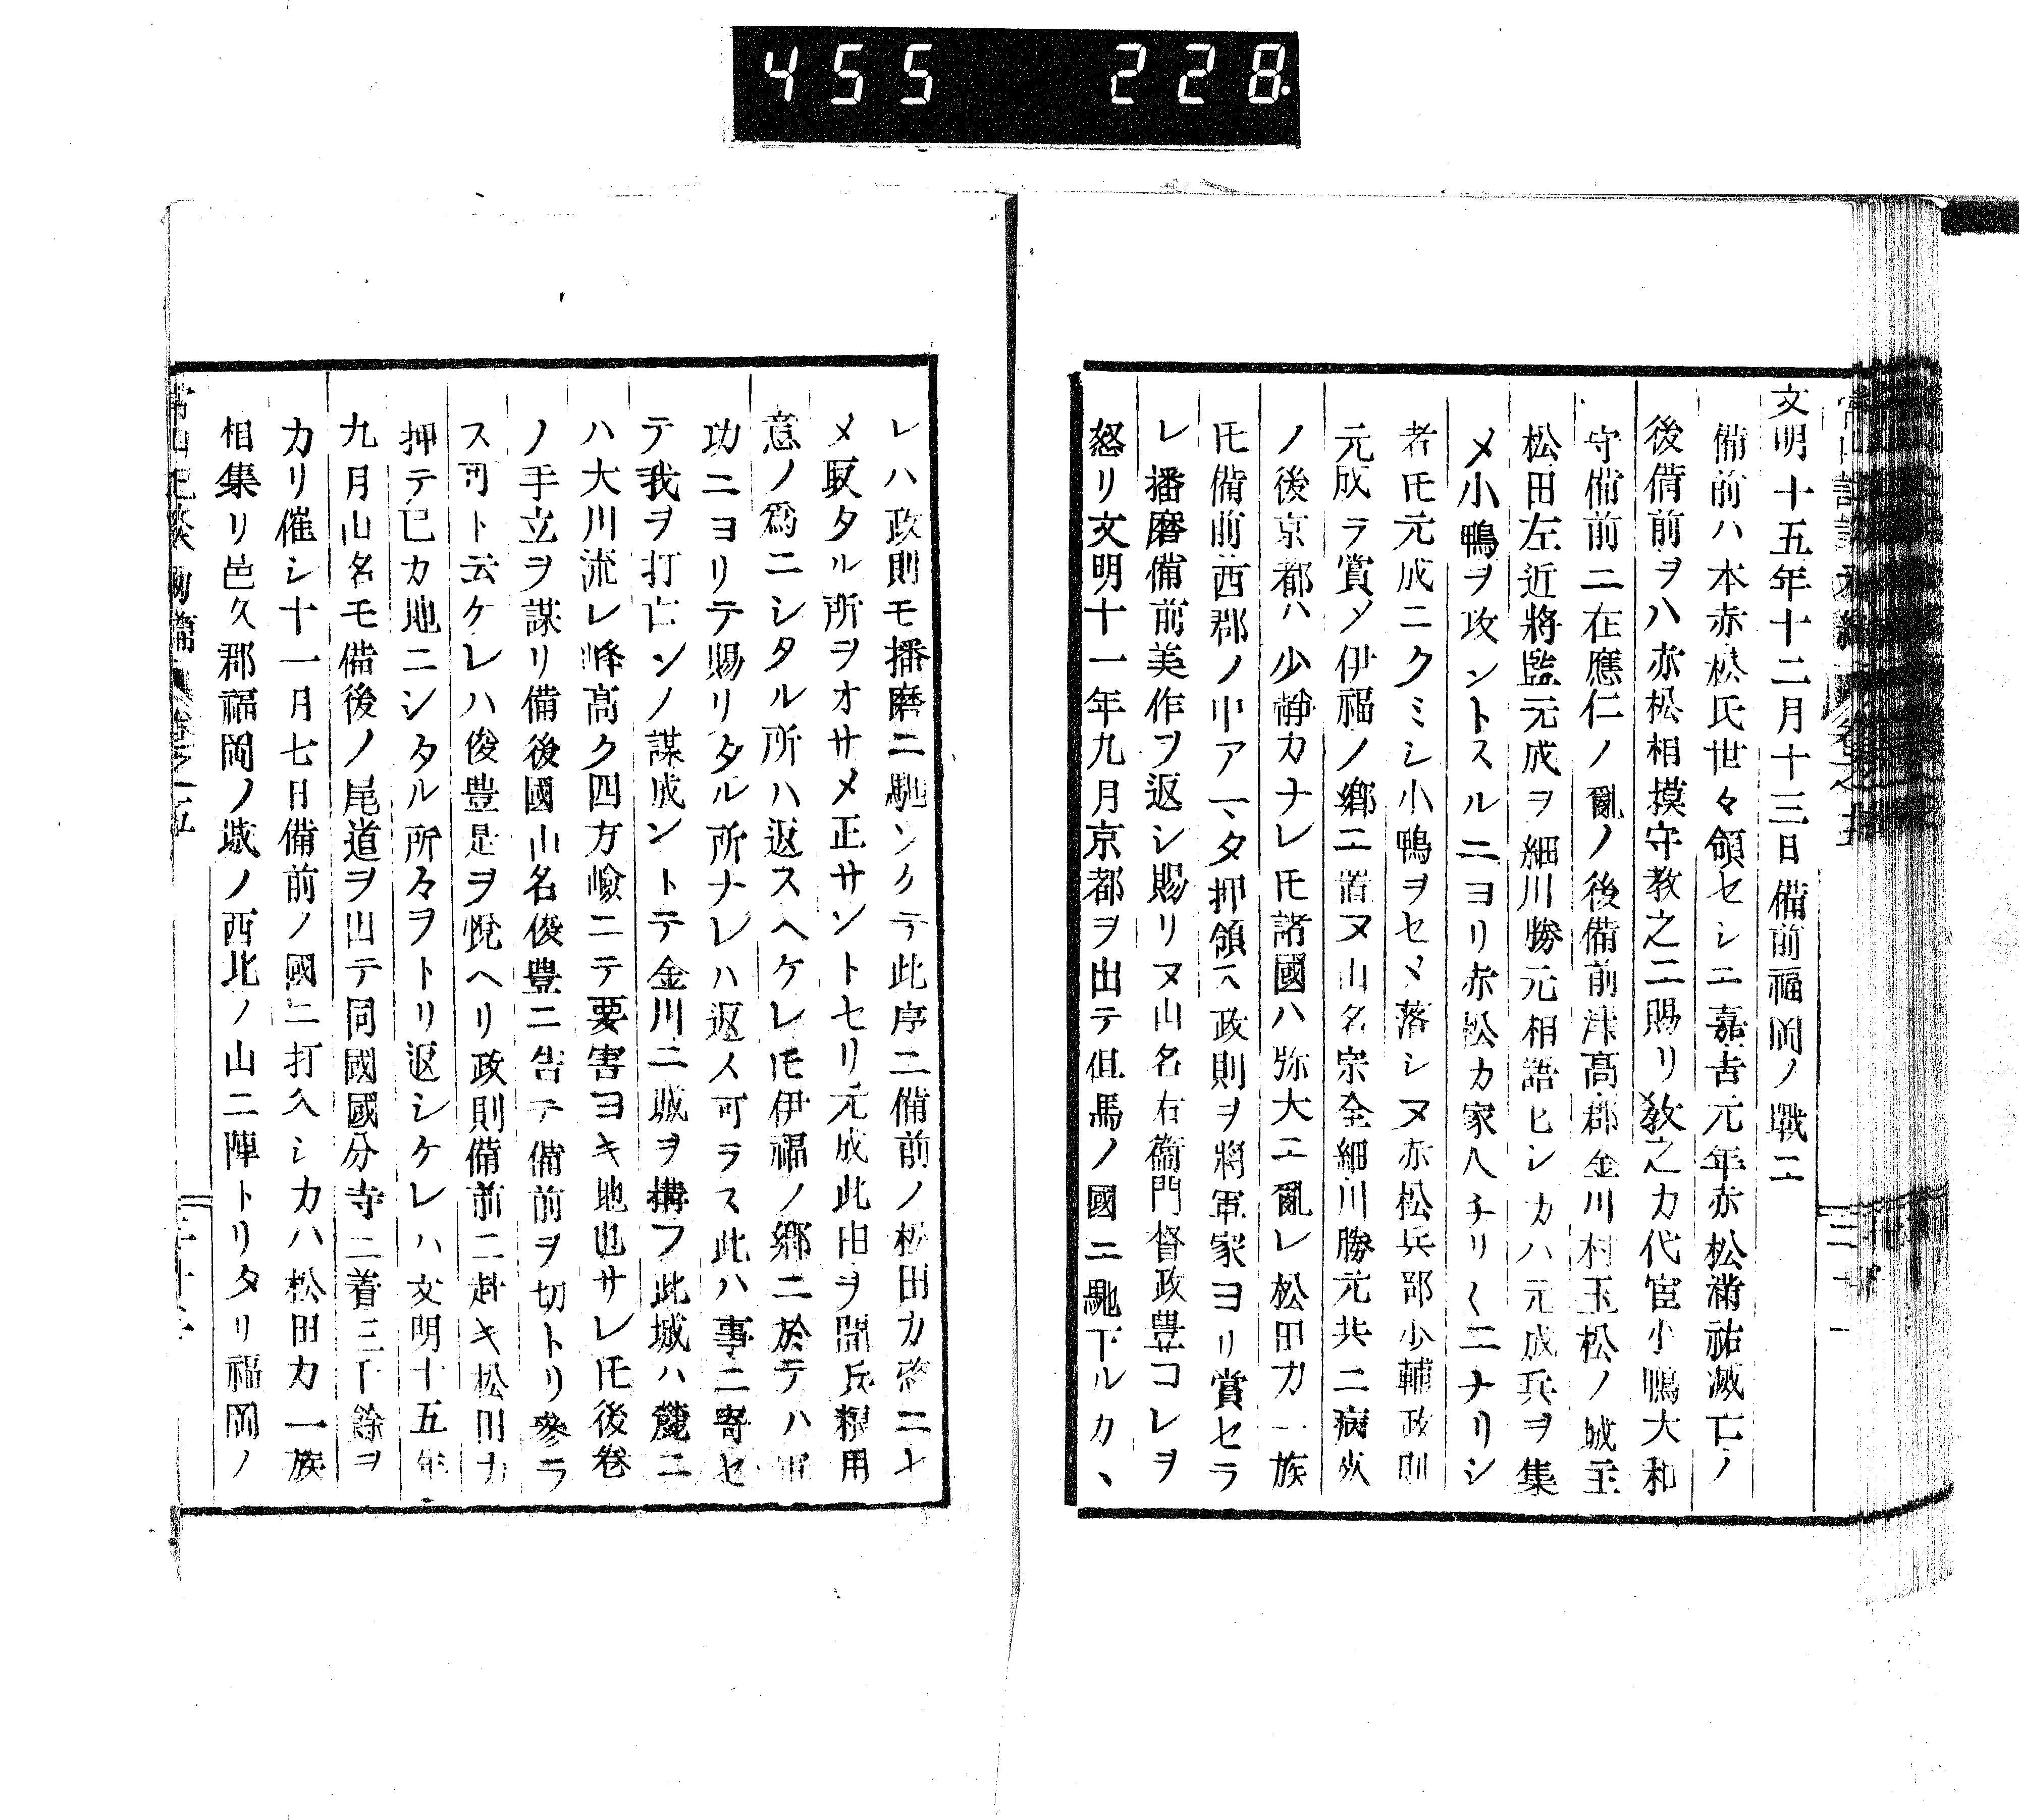 455 228
文明十五年十二月十三日備前福岡ノ戰ニ
備前ハ本赤松氏世々領セシニ嘉吉元年赤松滿祐滅亡ノ
後備前ヲハ赤松相摸守教之ニ賜リ教之カ代官小鴨大和
守備前ニ在應仁ノ亂ノ後備前津髙郡金川村玉松ノ城主
松田左近將監元成ヲ細川勝元相語ヒシカハ元成兵ヲ集
メ小鴨ヲ攻ントスルニヨリ赤松カ家人チリ〱ニナリシ
者𪜈元成ニクミシ小鴨ヲセメ落シヌ赤松兵部少輔政則
元成ヲ賞メ伊福ノ郷ニ置ヌ山名宗全細川勝元共ニ病死
ノ後京都ハ少静カナレ𪜈諸國ハ弥大ニ亂レ松田カ一族
𪜈備前西郡ノ中アマタ押領ス政則ヲ將軍家ヨリ賞セラ
レ播磨備前美作ヲ返シ賜リヌ山名右衞門督政豊コレヲ
怒リ文明十一年九月京都ヲ出テ但馬ノ國ニ馳下ルカヽ
レハ政則モ播磨ニ馳ソクテ此序ニ備前ノ松田カ恣ニセ
メ取タル所ヲオサメ正サントセリ元成此由ヲ聞兵粮用
意ノ爲ニシタル所ハ返スヘケレ𪜈伊福ノ郷ニ於テハ軍
功ニヨリテ賜リタル所ナレハ返ス可ラス此ハ事ニ寄セ
テ我ヲ打亡ンノ謀成ントテ金川ニ城ヲ搆フ此城ハ麓ニ
ハ大川流レ峰髙ク四方嶮ニテ要害ヨキ地也サレ𪜈後卷
ノ手立ヲ謀リ備後國山名俊豊ニ告テ備前ヲ切トリ參ラ
ス可ト云ケレハ俊豊是ヲ悅ヘリ政則備前ニ赴キ松田カ
押テ已カ地ニシタル所々ヲトリ返シケレハ文明十五年
九月山名モ備後ノ尾道ヲ出テ同國國分寺ニ着三千餘ヲ
カリ催シ十一月七日備前ノ國ニ打入シカハ松田カ一族
相集リ邑久郡福岡ノ城ノ西北ノ山ニ陣トリタリ福岡ノ